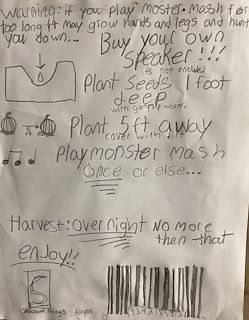 Warning: if you play moster mash for
too long it may grow hands and legs and hunt
you down...
Buy your own
speaker!!!
its not encluded
Plant Seeds 1 foot
deep
with gummy worms
Plant 5ft away
cover with dirt
Play monster mash
Once or else...
Harvest: over night no more
then that
enjoy!!
S
Things